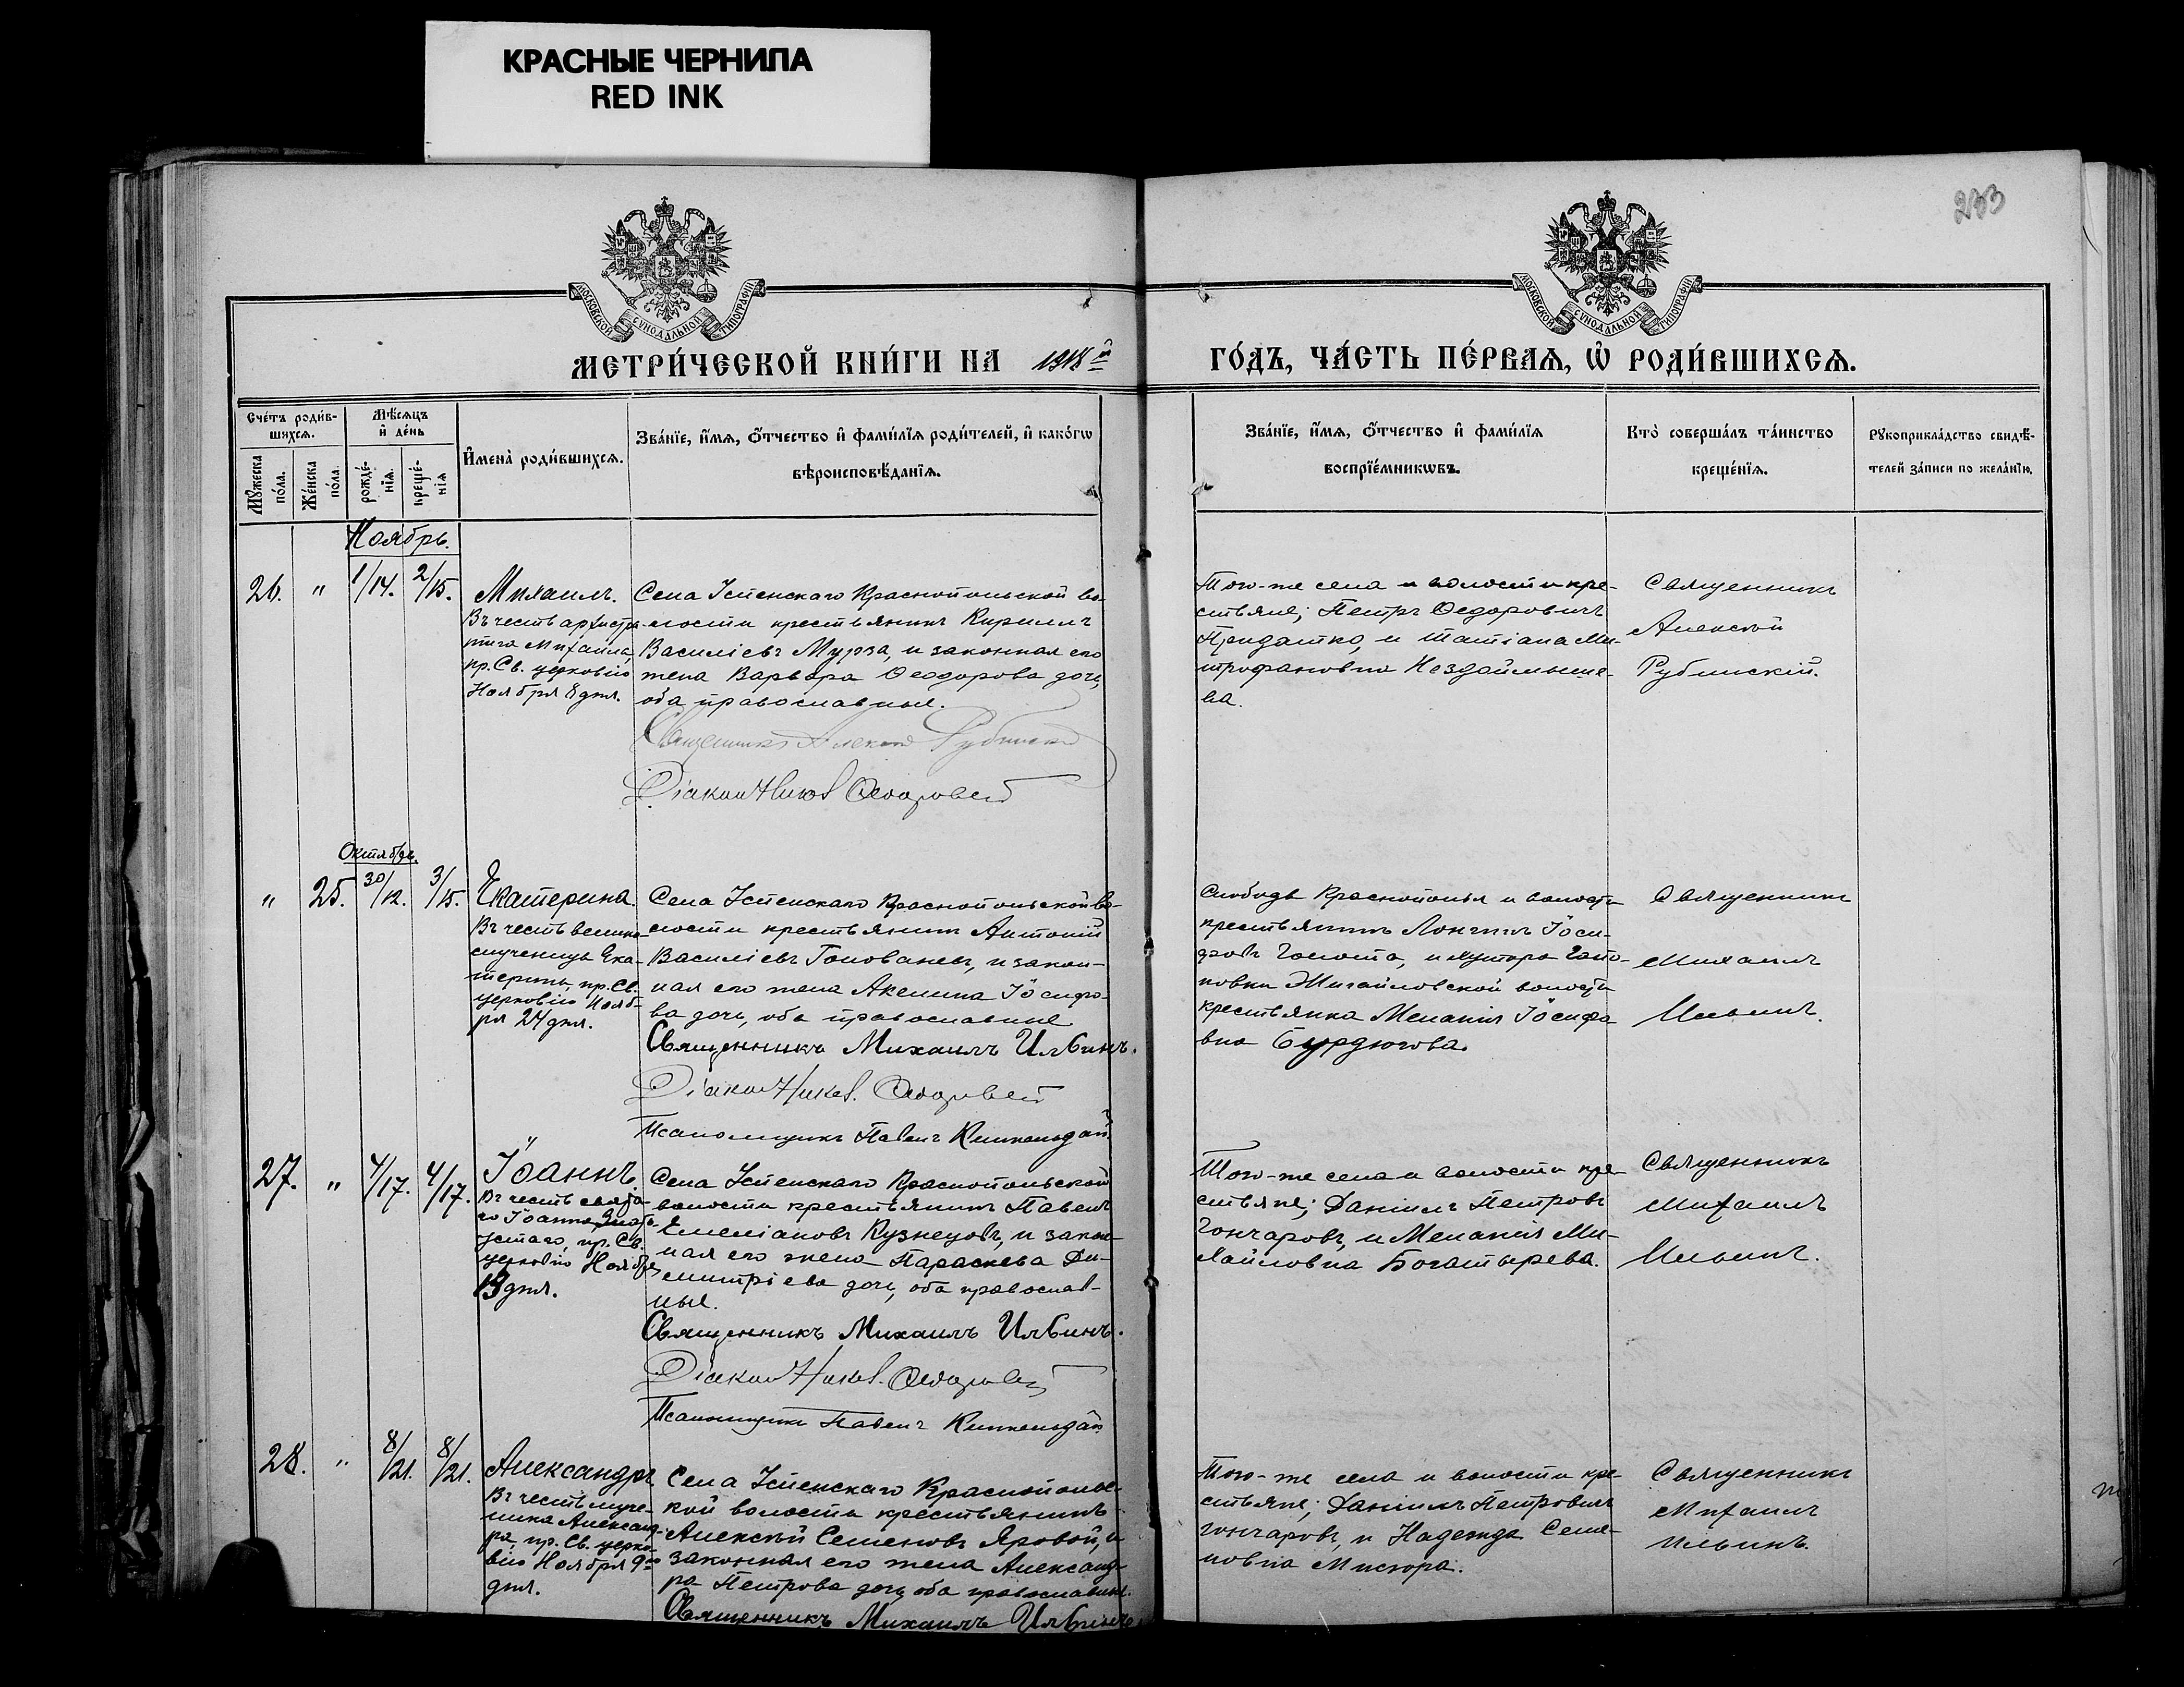 КРАСНЫЕ ЧЕРНИЛА
RED INK
233
МОСКОВСКОЙ СУНОДАЛЬНОЙ ТИПОГРАФІИ
МОСКОВСКОЙ СУНОДАЛЬНОЙ ТИПОГРАФІИ
МЕТРИ́ЧЕСКОЙ КНИ́ГИ НА 1918й ГО́ДЪ, ЧА́СТЬ ПЕ́РВАѦ, Ѽ РОДИ́ВШИХСѦ.
Сче́тъ роди́в-
шихсѧ.
Мꙋ́жеска по́ла.
Же́нска по́ла.
Мѣ́сѧцъ
и҆ де́нь
рожде́-
нїѧ.
креще́-
нїѧ
И҆мена̀ роди́вшихсѧ.
Зва́нїе, и҆́мѧ, ѻ҆́тчество и҆ фами́лїѧ роди́телей, и҆ како́гѡ
вѣроисповѣ́данїѧ.
Зва́нїе, и҆́мѧ, ѻ҆́тчество и҆ фами́лїѧ
воспрїе́мникѡвъ.
Кто̀ соверша́лъ та́инство
креще́нїѧ.
Рꙋкоприкла́дство свидѣ́-
телей за́писи по жела́нїю.
Ноябрь.
26. " 1/14. 2/15.
Михаилъ.
Въ честь архистра-
тига Михаила,
пр. Св. церковію
Ноября 8 дня.
Села Успенскаго Краснопольской во-
лости крестьянинъ Кириллъ
Василіевъ Мурза, и законная его
жена Варвара Ѳеодорова дочь,
оба православные.
Священникъ Алексій Рубинскій
Діаконъ
Того-же села и волости кре-
стьяне; Петръ Ѳедоровичъ
Придатко, и Татіана Ми-
трофановна Нездоймыше-
ва.
Священникъ
Алексѣй
Рубинскій.
Октябрь.
" 25. 30/12. 3/15.
Екатерина.
Въ честь велико-
мученицы Ека-
терины, пр. Св.
церковію Нояб-
ря 24 дня.
Села Успенскаго Краснопольской во-
лости крестьянинъ Антоній
Василіевъ Голованевъ, и закон-
ная его жена Акелина Іосифо-
ва дочь, оба православные
Священникъ Михаилъ Ильинъ.
Діаконъ
Псаломщикъ Павелъ
Слободы Краснополья и волости
крестьянинъ Лонгинъ Іоси-
фовъ Голота, и хутора Гапо-
новки Михайловской волости
крестьянка Меланія Іосифо
вна Бурдюгова.
Священникъ
Михаилъ
Ильинъ.
27. " 4/17. 4/17.
Іоаннъ.
Въ честь свята-
го Іоанна Злато-
устаго, пр. Св.
церковію Ноября
13 дня.
Села Успенскаго Краснопольской
волости крестьянинъ Павелъ
Емеліановъ Кузнецовъ, и закон-
ная его жена Параскева Ди-
митріева дочь, оба православ-
ные.
Священникъ Михаилъ Ильинъ.
Діаконъ
Псаломщикъ Павелъ
Того-же села и волости кре
стьяне; Даніилъ Петровъ
Гончаровъ, и Меланія Ми-
хайловна Богатырева.
Священникъ
Михаилъ
Ильинъ.
28. " 8/21. 8/21.
Александръ
Въ честь муче-
ника Александ-
ра, пр. Св. церко-
вію Ноября 9го
дня.
Села Успенскаго Краснопольс-
кой волости крестьянинъ
Алексѣй Семеновъ Яровой, и
законная его жена Александ-
ра Петрова дочь, оба православные.
Священникъ Михаилъ Ильинъ
Того-же села и волости кре-
стьяне; Даніилъ Петровичъ
Гончаровъ, и Надежда Семе-
новна Мисюра.
Священникъ
Михаилъ
Ильинъ.